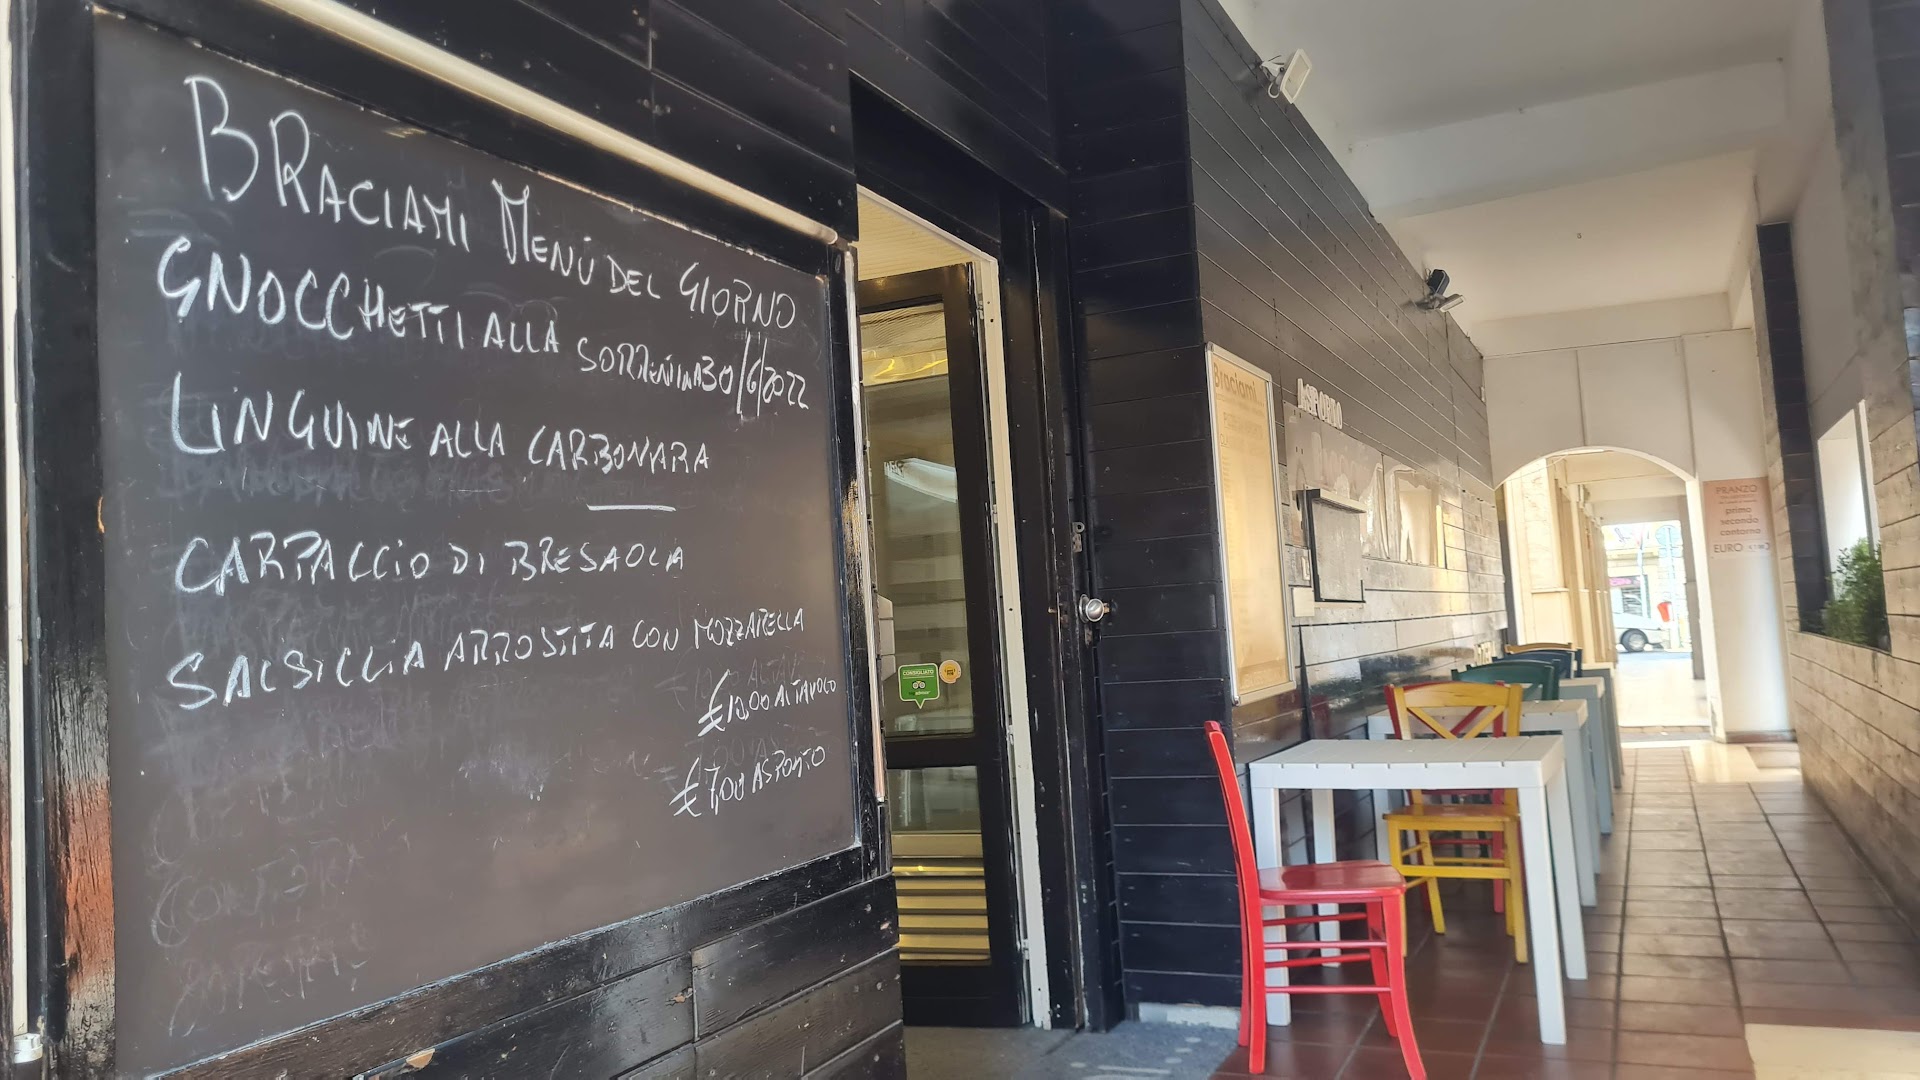 BRACIAMI MENÙ DEL GIORNO
30/6/2022
GNOCCHETTI ALLA SORRENTINA
LINGUINE ALLA CARBONARA
CARPACCIO DI BRESAOLA
SALSICCIA ARROSTITA CON MOZZARELLA
€10,00 AL TAVOLO
€7,00 ASPORTO
CONSIGLIATO
Braciami
ASPORTO
PRANZO
primo
secondo
contorno
EURO